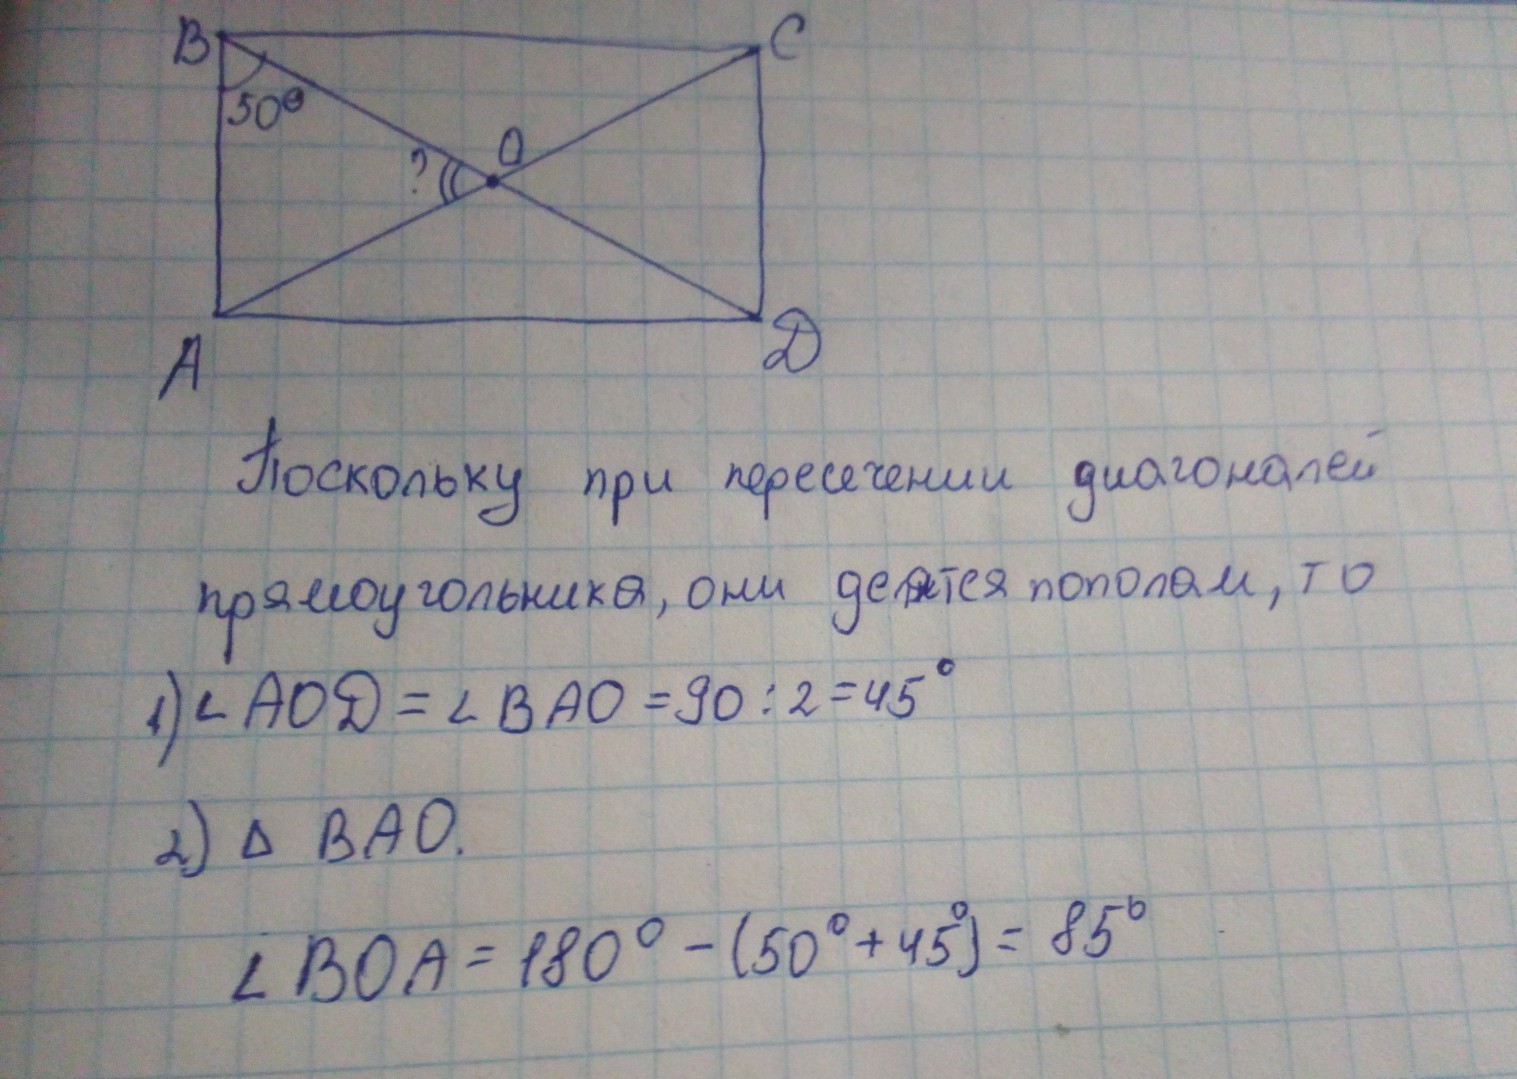 B C
50°
? O
A D
Поскольку при пересечении диагоналей
прямоугольника, они делятся пополам, то
1) ∠ AOD = ∠ BAO = 90 : 2 = 45°
2) Δ BAO.
∠ BOA = 180° - (50° + 45°) = 85°